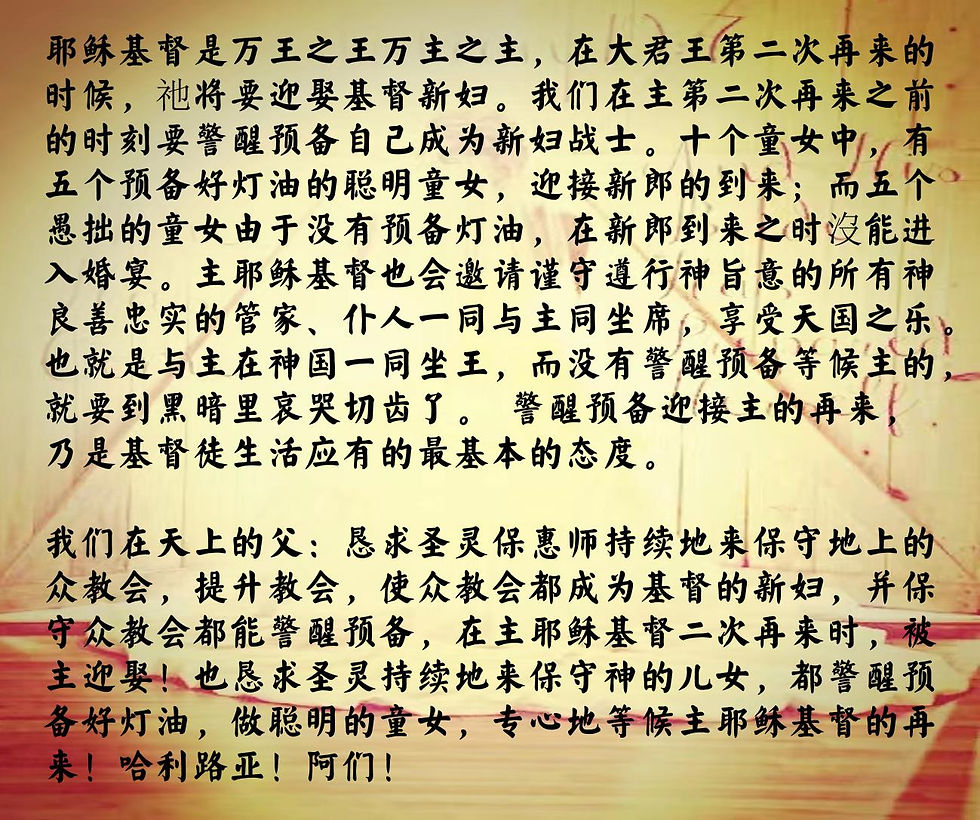 耶稣基督是万王之王万主之主，在大君王第二次再来的
时候，祂将要迎娶基督新妇。我们在主第二次再来之前
的时刻要警醒预备自己成为新妇战士。十个童女中，有
五个预备好灯油的聪明童女，迎接新郎的到来；而五个
愚拙的童女由于没有预备灯油，在新郎到来之时沒能进
入婚宴。主耶稣基督也会邀请谨守遵行神旨意的所有神
良善忠实的管家、仆人一同与主同坐席，享受天国之乐。
也就是与主在神国一同坐王，而没有警醒预备等候主的，
就要到黑暗里哀哭切齿了。 警醒预备迎接主的再来，
乃是基督徒生活应有的最基本的态度。
我们在天上的父：恳求圣灵保惠师持续地来保守地上的
众教会，提升教会，使众教会都成为基督的新妇，并保
守众教会都能警醒预备，在主耶稣基督二次再来时，被
主迎娶！也恳求圣灵持续地来保守神的儿女，都警醒预
备好灯油，做聪明的童女，专心地等候主耶稣基督的再
来！哈利路亚！阿们！